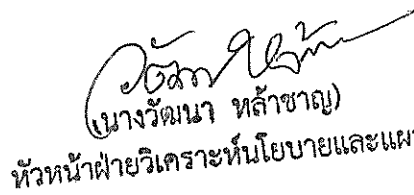 (นางวัฒนา หล้าชาญ)
หัวหน้าฝ่ายวิเคราะห์นโยบายและแผ